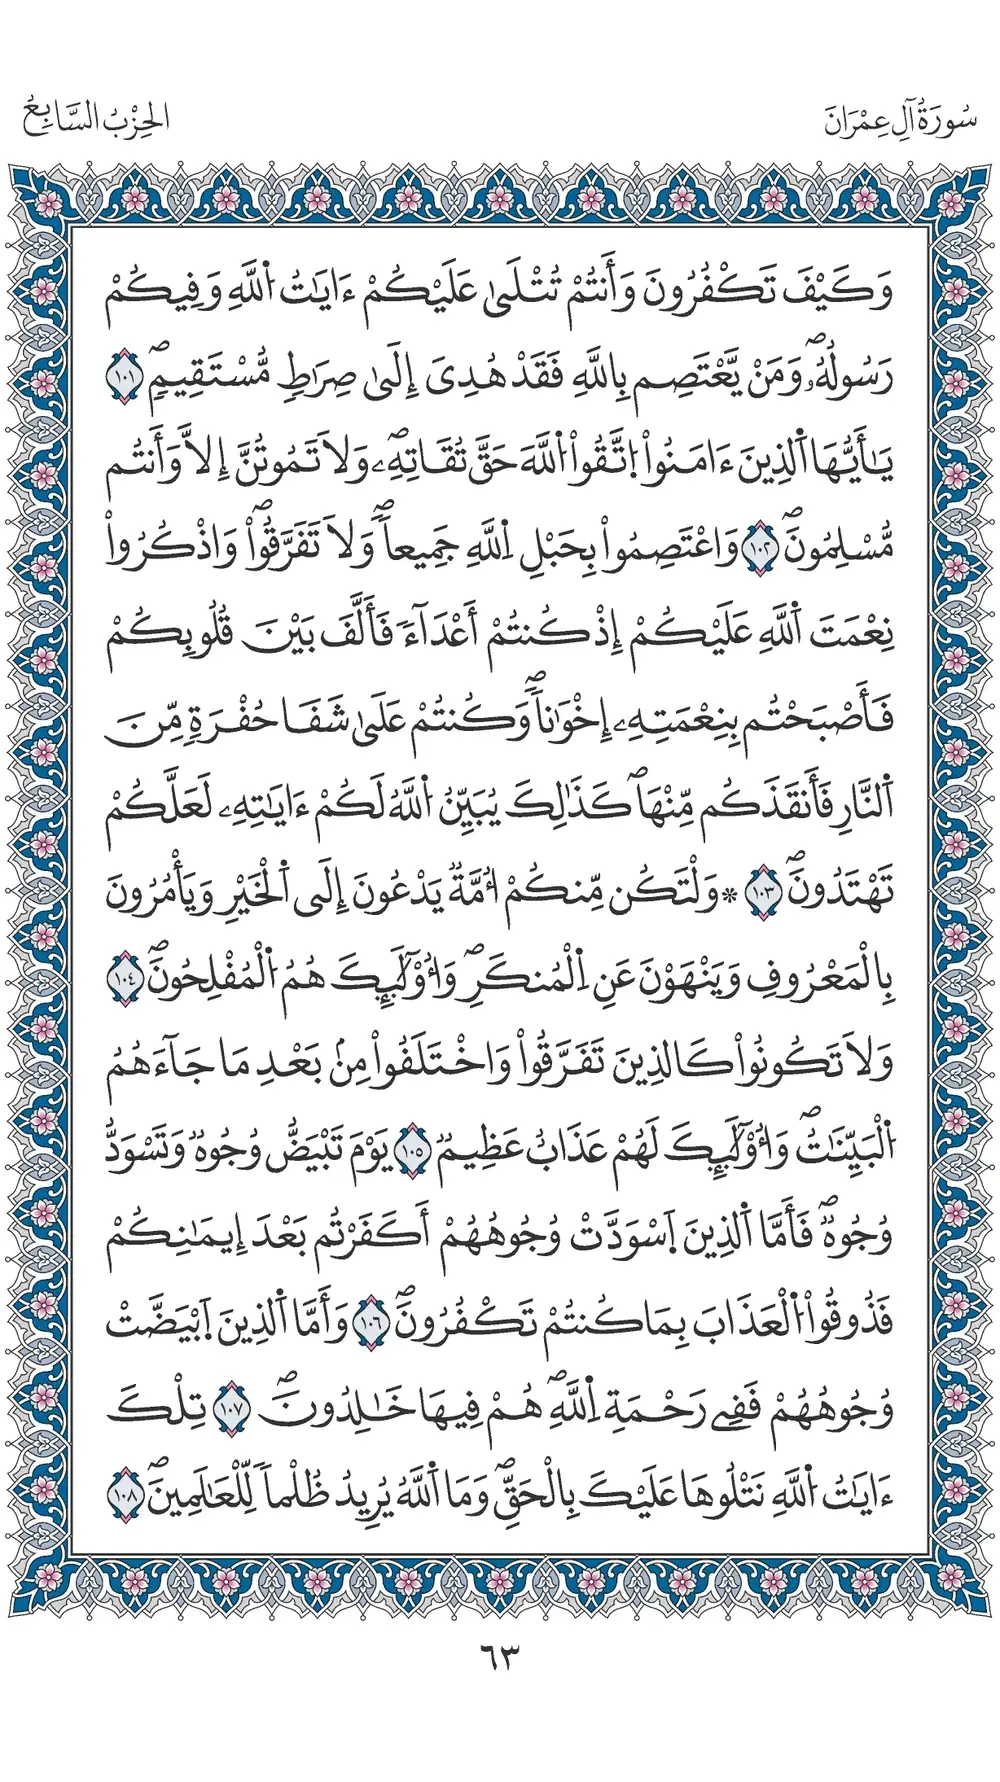 سُورَةُ آلِ عِمْرَانَ
الحِزْبُ السَّابِعُ
وَكَيْفَ تَكْفُرُونَ وَأَنتُمْ تُتْلَىٰ عَلَيْكُمْ ءَايَٰتُ اُ۬للَّهِ وَفِيكُمْ
رَسُولُهُۥۖ وَمَنْ يَّعْتَصِم بِاللَّهِ فَقَدْ هُدِىَ إِلَىٰ صِرَٰطٖ مُّسْتَقِيمٖۖ ١٠١
يَٰأَيُّهَا اَ۬لذِينَ ءَامَنُواْ اُ۪تَّقُواْ اُ۬للَّهَ حَقَّ تُقَاتِهِۦۖ وَلَا تَمُوتُنَّ إِلَّا وَأَنتُم
مُّسْلِمُونَۖ ١٠٢ وَاعْتَصِمُواْ بِحَبْلِ اِ۬للَّهِ جَمِيعاٗۖ وَلَا تَفَرَّقُواْۖ وَاذْكُرُواْ
نِعْمَتَ اَ۬للَّهِ عَلَيْكُمْ إِذْ كُنتُمْ أَعْدَآءٗ فَأَلَّفَ بَيْنَ قُلُوبِكُمْ
فَأَصْبَحْتُم بِنِعْمَتِهِۦ إِخْوَٰناٗۖ وَكُنتُمْ عَلَىٰ شَفَا حُفْرَةٖ مِّنَ
اَ۬لنَّارِ فَأَنقَذَكُم مِّنْهَاۖ كَذَٰلِكَ يُبَيِّنُ اُ۬للَّهُ لَكُمْ ءَايَٰتِهِۦ لَعَلَّكُمْ
تَهْتَدُونَۖ ١٠٣ * وَلْتَكُن مِّنكُمْ أُمَّةٞ يَدْعُونَ إِلَى اَ۬لْخَيْرِ وَيَأْمُرُونَ
بِالْمَعْرُوفِ وَيَنْهَوْنَ عَنِ اِ۬لْمُنكَرِۖ وَأُوْلَٰٓئِكَ هُمُ اُ۬لْمُفْلِحُونَۖ ١٠٤
وَلَا تَكُونُواْ كَالذِينَ تَفَرَّقُواْ وَاخْتَلَفُواْ مِنۢ بَعْدِ مَا جَآءَهُمُ
اُ۬لْبَيِّنَٰتُۖ وَأُوْلَٰٓئِكَ لَهُمْ عَذَابٌ عَظِيمٞ ١٠٥ يَوْمَ تَبْيَضُّ وُجُوهٞ وَتَسْوَدُّ
وُجُوهٞۖ فَأَمَّا اَ۬لذِينَ اَ۪سْوَدَّتْ وُجُوهُهُمْ أَكَفَرْتُم بَعْدَ إِيمَٰنِكُمْ
فَذُوقُواْ اُ۬لْعَذَابَ بِمَا كُنتُمْ تَكْفُرُونَۖ ١٠٦ وَأَمَّا اَ۬لذِينَ اَ۪بْيَضَّتْ
وُجُوهُهُمْ فَفِى رَحْمَةِ اِ۬للَّهِۖ هُمْ فِيهَا خَٰلِدُونَۖ ١٠٧ تِلْكَ
ءَايَٰتُ اُ۬للَّهِ نَتْلُوهَا عَلَيْكَ بِالْحَقِّۖ وَمَا اَ۬للَّهُ يُرِيدُ ظُلْماٗ لِّلْعَٰلَمِينَۖ ١٠٨
٦٣